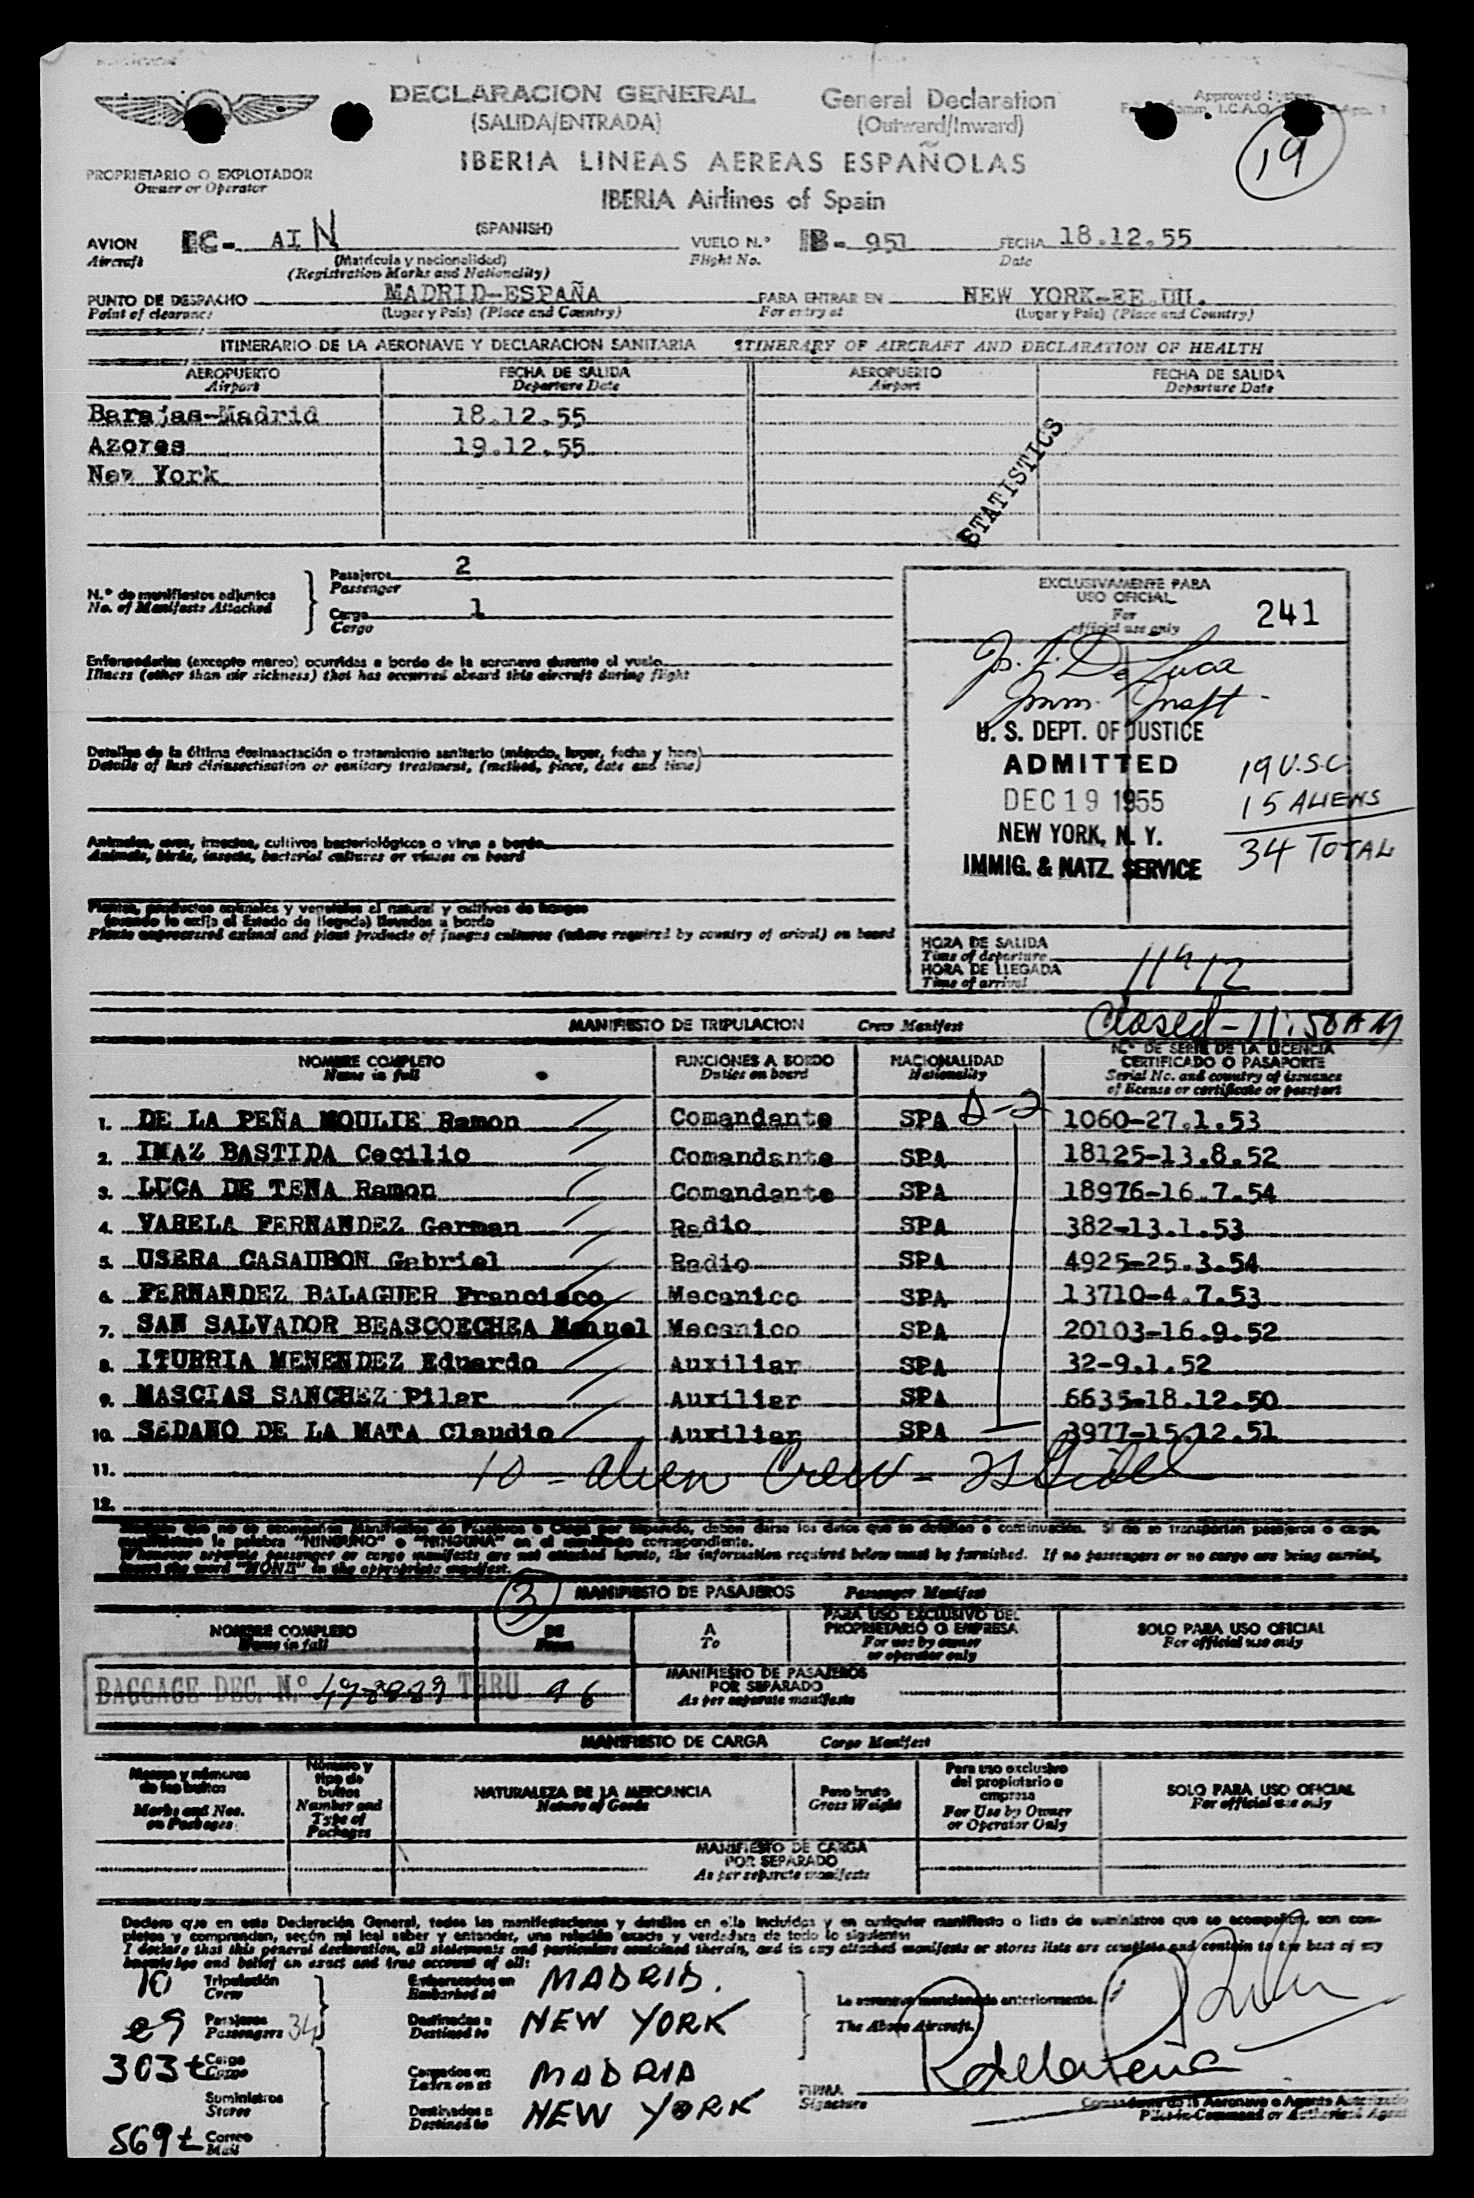 DECLARACION GENERAL General Declaration
(SALIDA/ENTRADA) (Outward/Inward)
Approved
I.C.A.O.
19
IBERIA LINEAS AEREAS ESPAÑOLAS
IBERIA Airlines of Spain
PROPRIETARIO O EXPLOTADOR
Owner or Operator
AVION EC- AIN (SPANISH) VUELO N.° IB- 951 FECHA 18.12.55
Aircraft (Matrícula y nacionalidad) Flight No. Date
(Registration Marks and Nationality)
PUNTO DE DESPACHO MADRID-ESPAÑA PARA ENTRAR EN NEW YORK-EE.UU.
Point of clearance (Lugar y País) (Place and Country) For entry at (Lugar y País) (Place and Country)
ITINERARIO DE LA AERONAVE Y DECLARACION SANITARIA ITINERARY OF AIRCRAFT AND DECLARATION OF HEALTH
AEROPUERTO FECHA DE SALIDA AEROPUERTO FECHA DE SALIDA
Airport Departure Date Airport Departure Date
Barajas-Madrid 18.12.55
Azores 19.12.55
New York
STATISTICS
N.° de manifiestos adjuntos Pasajeros 2
No. of Manifests Attached Passenger
Carga 1
Cargo
EXCLUSIVAMENTE PARA
USO OFICIAL
For
official use only
241
Enfermedades (excepto mareo) ocurridas a bordo de la aeronave durante el vuelo
Illness (other than air sickness) that has occurred aboard this aircraft during flight
De Luca
Imm. Inspt.
Detalles de la última desinsectación o tratamiento sanitario (método, lugar, fecha y hora)
Details of last disinsectisation or sanitary treatment, (method, place, date and time)
U. S. DEPT. OF JUSTICE
ADMITTED
DEC 19 1955
NEW YORK, N. Y.
IMMIG. & NATZ. SERVICE
19 U.S.C
15 ALIENS
34 TOTAL
Animales, aves, insectos, cultivos bacteriológicos o virus a bordo
Animals, birds, insects, bacterial cultures or viruses on board
Plantas, productos animales y vegetales al natural y cultivos de hongos
(cuando lo exija el Estado de llegada) llevados a bordo
Plants unprocessed animal and plant products of fungus cultures (where required by country of arival) on board
HORA DE SALIDA
Time of departure
HORA DE LLEGADA
Time of arrival
11 12
Closed - 11:50 AM
MANIFIESTO DE TRIPULACION Crew Manifest
NOMBRE COMPLETO FUNCIONES A BORDO NACIONALIDAD N.° DE SERIE DE LA LICENCIA
Name in full Duties on board Nationality CERTIFICADO O PASAPORTE
Serial No. and country of issuance
of license or certificate or passport
1. DE LA PEÑA MOULIE Ramon Comandante SPA D-2 1060-27.1.53
2. IMAZ BASTIDA Cecilio Comandante SPA 18125-13.8.52
3. LUCA DE TENA Ramon Comandante SPA 18976-16.7.54
4. VARELA FERNANDEZ German Radio SPA 382-13.1.53
5. USERA CASAUBON Gabriel Radio SPA 4925-25.3.54
6. FERNANDEZ BALAGUER Francisco Mecanico SPA 13710-4.7.53
7. SAN SALVADOR BEASCOECHEA Manuel Mecanico SPA 20103-16.9.52
8. ITURRIA MENENDEZ Eduardo Auxiliar SPA 32-9.1.52
9. MASCIAS SANCHEZ Pilar Auxiliar SPA 6635-18.12.50
10. SEDANO DE LA MATA Claudio Auxiliar SPA 3977-15.12.51
11. 10 - alien Crew -
12.
Siempre que no se acompañen Manifiestos de Pasajeros o Carga por separado, deben darse los datos que se detallan a continuación. Si no se transportan pasajeros o carga,
la palabra "NINGUNO" o "NINGUNA" en el manifiesto correspondiente.
Whenever separate passenger or cargo manifests are not attached hereto, the information required below must be furnished. If no passengers or no cargo are being carried,
insert the word "NONE" in the appropriate manifest.
3
MANIFIESTO DE PASAJEROS Passenger Manifest
NOMBRE COMPLETO DE A PARA USO EXCLUSIVO DEL SOLO PARA USO OFICIAL
Name in full From To PROPRIETARIO O EMPRESA For official use only
For use by owner
or operator only
BAGGAGE DEC. N.° THRU 96
MANIFIESTO DE PASAJEROS
POR SEPARADO
As per separate manifests
MANIFIESTO DE CARGA Cargo Manifest
Marcas y números
de los bultos
Marks and Nos.
on Packages
Número y
tipo de
bultos
Number and
Type of
Packages
NATURALEZA DE LA MERCANCIA
Nature of Goods
Peso bruto
Gross Weight
Para uso exclusivo
del propietario o
empresa
For Use by Owner
or Operator Only
SOLO PARA USO OFICIAL
For official use only
MANIFIESTO DE CARGA
POR SEPARADO
As per separate manifests
Declaro que en esta Declaración General, todas las manifestaciones y detalles en ella incluídos y en cualquier manifiesto o lista de suministros que se acompañan, son completos y comprenden, según mi leal saber y entender, una relación exacta y verdadera de todo lo siguiente:
I declare that this general declaration, all statements and particulars contained therein, and in any attached manifests or stores lists are complete and contain to the best of my
knowledge and belief an exact and true account of all:
10 Tripulación Embarcados en MADRID.
Crew Embarked at
29 Pasajeros 34 Destinados a NEW YORK
Passengers Destined to
La aeronave mencionada anteriormente.
The Above Aircraft.
303 t Carga Cargados en MADRID
Cargo Laden on at
Suministros Destinados a NEW YORK
Stores Destined to
569 t Correo
Mail
FIRMA
Signature
R de la Peña
Comandante de la Aeronave o Agente Autorizado
Pilot-in-Command or Authorised Agent